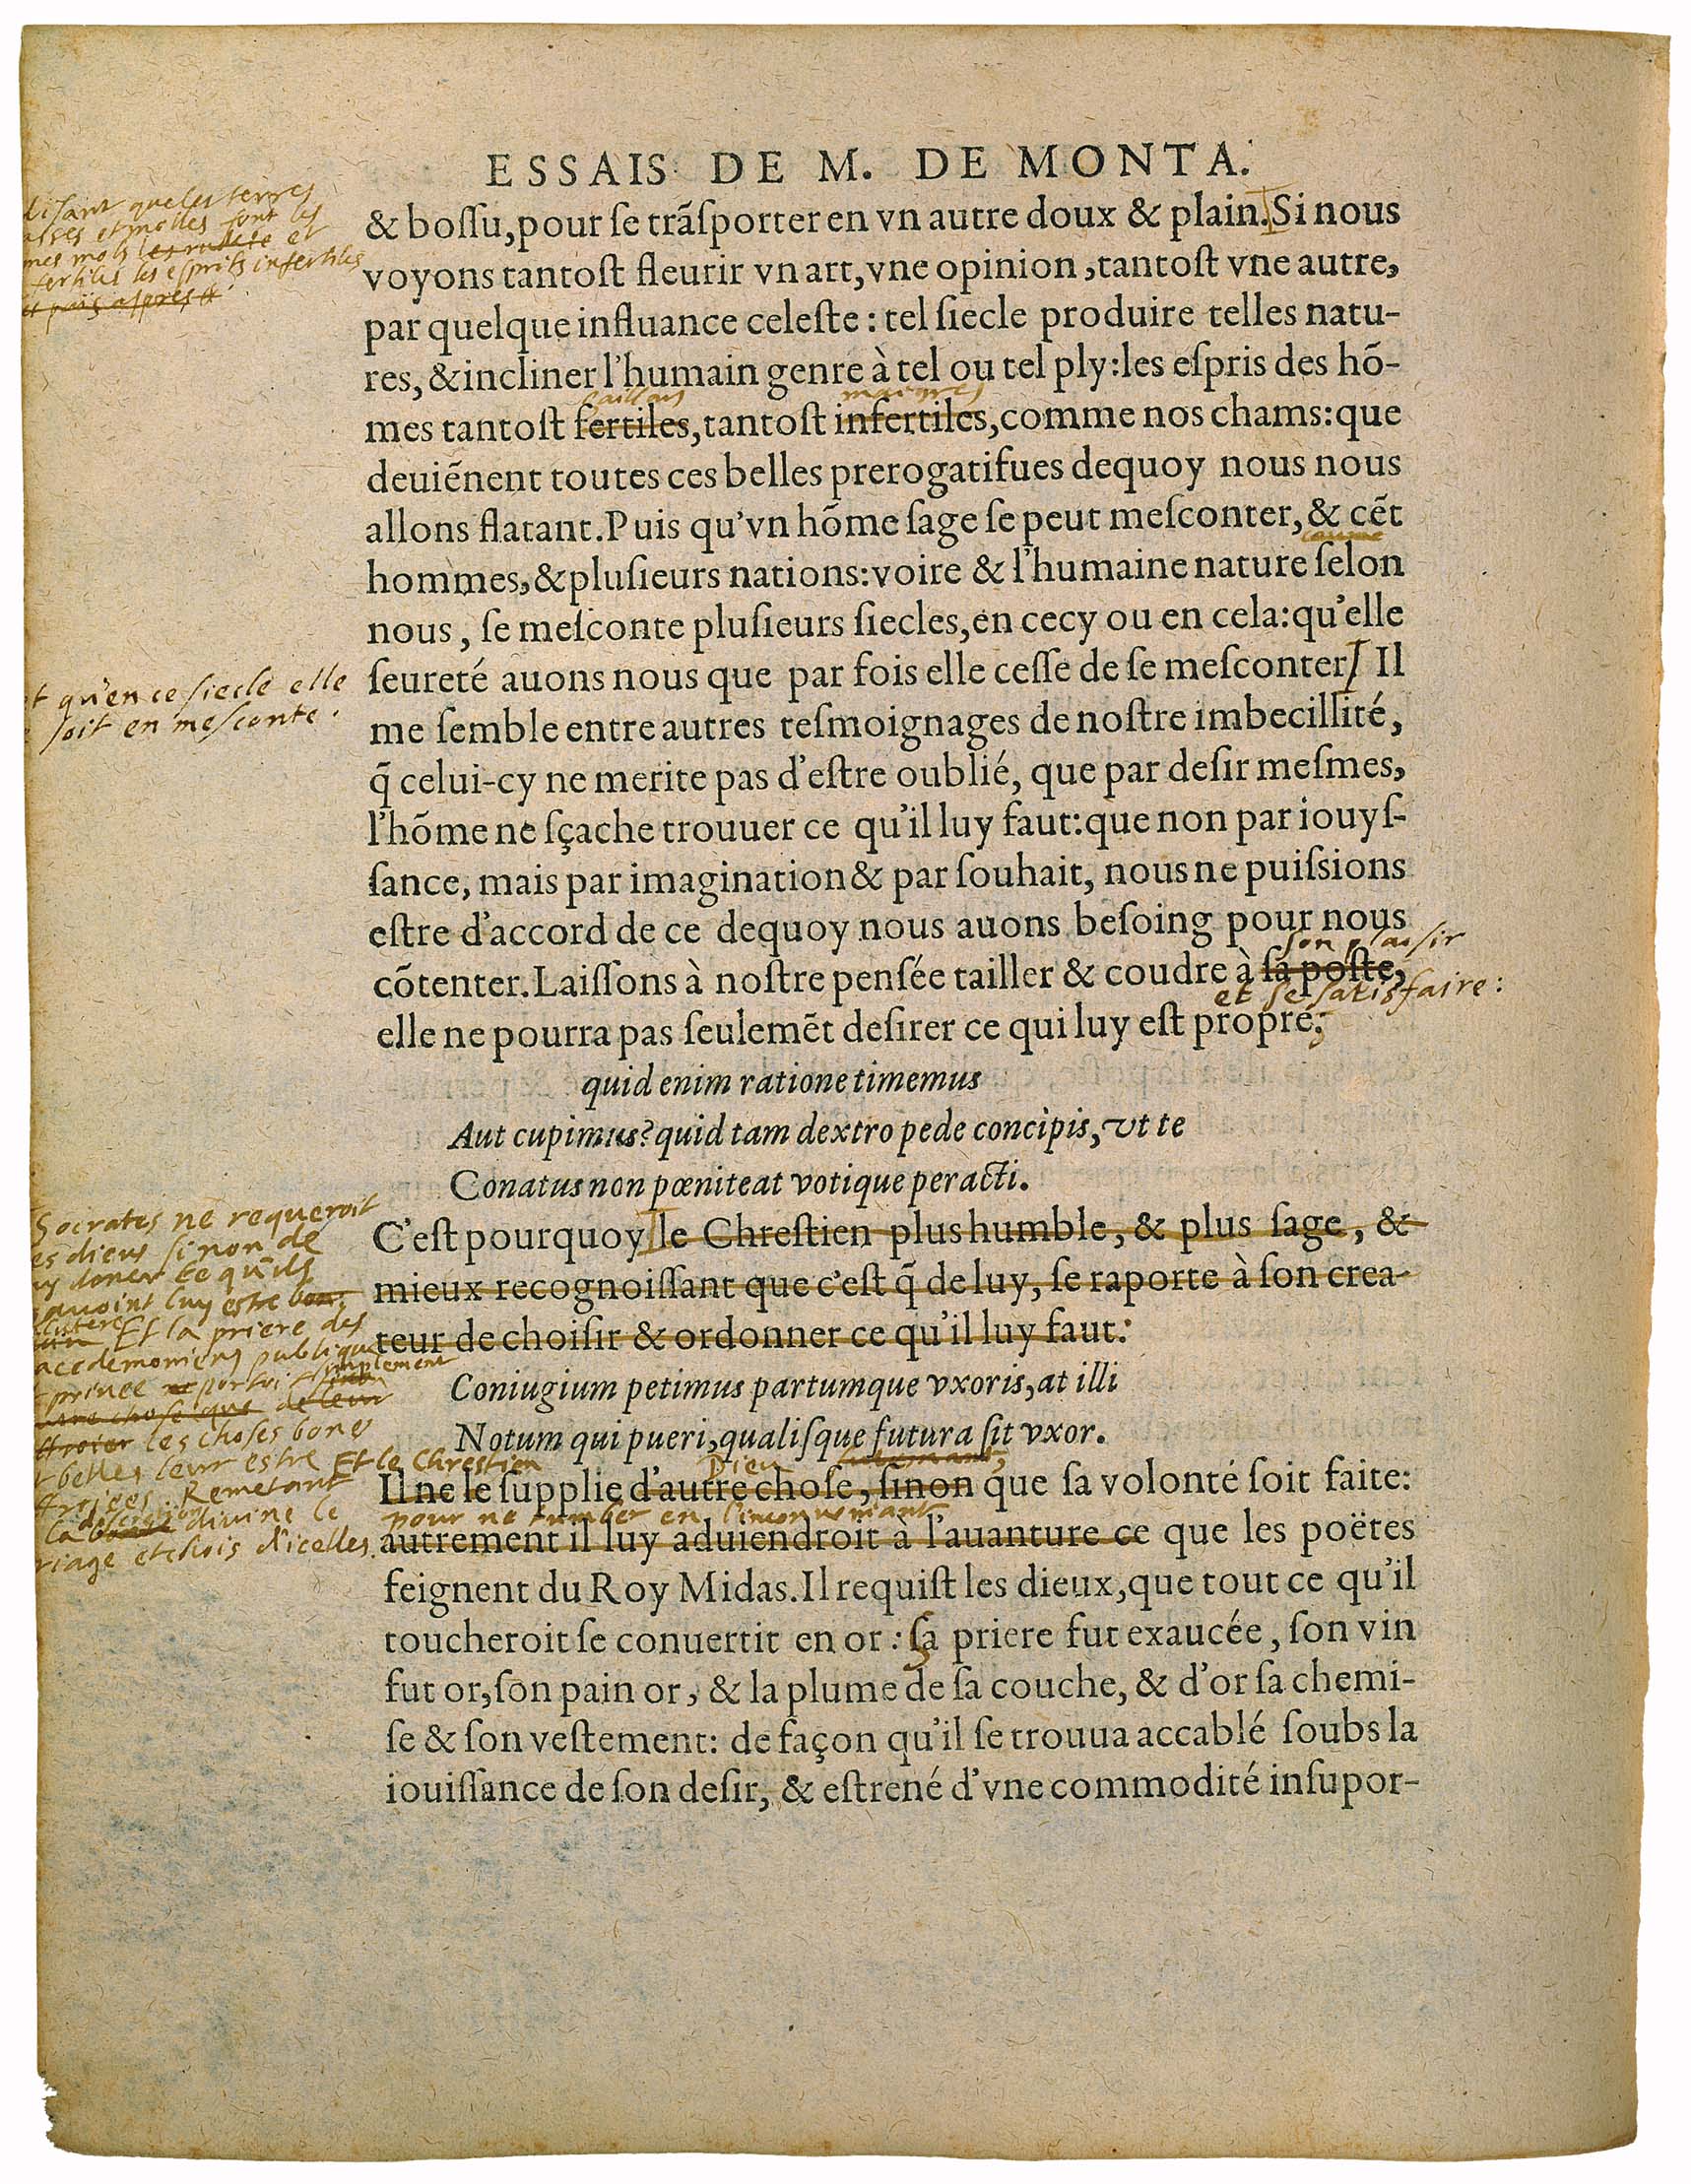 ESSAIS DE M. DE MONTA.
& boſſu, pour ſe trãſporter en vn autre doux & plain. Si nous
voyons tantoſt fleurir vn art, vne opinion, tantoſt vne autre,
par quelque influance celeſte : tel ſiecle produire telles natu-
res, & incliner l'humain genre à tel ou tel ply: les eſpris des hõ-
gaillars maigres
mes tantoſt fertiles, tantoſt infertiles, comme nos chams: que
deuiẽnent toutes ces belles prerogatifues dequoy nous nous
allons flatant. Puis qu'vn hõme ſage ſe peut meſconter, & cẽt
hommes, & pluſieurs nations: voire & l'humaine nature ſelon
nous, ſe meſconte pluſieurs ſiecles, en cecy ou en cela: qu'elle
ſeureté auons nous que par fois elle ceſſe de ſe meſconter Il
me ſemble entre autres teſmoignages de noſtre imbecillité,
q̃ celui-cy ne merite pas d'eſtre oublié, que par deſir meſmes,
l'hõme ne ſçache trouuer ce qu'il luy faut: que non par iouyſ-
ſance, mais par imagination & par ſouhait, nous ne puiſsions
eſtre d'accord de ce dequoy nous auons beſoing pour nous
son plaisir
cõtenter. Laiſſons à noſtre penſée tailler & coudre à ſa poſte,
et se satisfaire :
elle ne pourra pas ſeulemẽt deſirer ce qui luy eſt propre;
quid enim ratione timemus
Aut cupimus? quid tam dextro pede concipis, vt te
Conatus non pœniteat votique peracti.
C'eſt pourquoy le Chreſtien plus humble, & plus ſage, &
mieux recognoiſſant que c'eſt q̃ de luy, ſe raporte à ſon crea-
teur de choiſir & ordonner ce qu'il luy faut:
Coniugium petimus partumque vxoris, at illi
Notum qui pueri, qualiſque futura ſit vxor.
Et le Chrestien Dieu
Il ne le ſupplie d'autre choſe, ſinon que ſa volonté ſoit faite:
pour ne tumber en l'inconveniant
autrement il luy aduiendroit à l'auanture ce que les poëtes
feignent du Roy Midas. Il requiſt les dieux, que tout ce qu'il
toucheroit ſe conuertit en or : ſa priere fut exaucée, ſon vin
fut or, ſon pain or, & la plume de ſa couche, & d'or ſa chemi-
ſe & ſon veſtement: de façon qu'il ſe trouua accablé ſoubs la
iouiſſance de ſon deſir, & eſtrené d'vne commodité inſupor-
disant que les terres
et molles font les
mes mols et
fertiles les esprits infertiles
et païs aspres
qu'en ce siecle elle
soit en mesconte.
Socrates ne requeroit
dieux sinon de
doner ce qu'ils
luy estre bon
Et la priere des
publique
privee portoit simplement
chose que de leur
les choses bones
belles leur estre
Remetant
la divine le
et chois d'icelles.